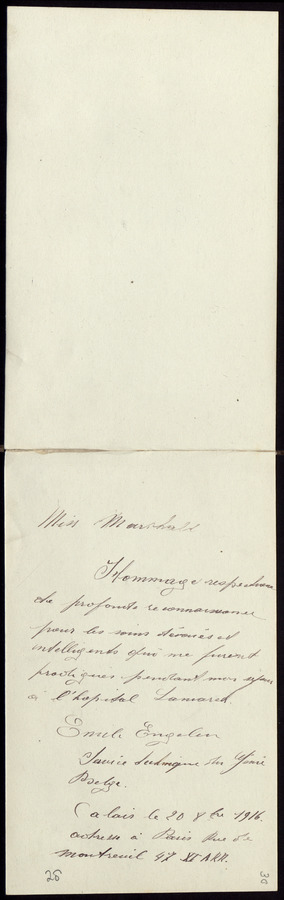 Miss Marshall
Hommage respectueux
de profonde reconnaissance
pour les soins dévoués et
intelligents qui me furent
prodigués pendant mon séjour
à l'hopital Lamarck.
Emile Engelen
Service technique du Génie
Belge.
Calais le 20 8bre 1916.
adresse à Paris Rue de
Montreuil 47 XI ARR.
26
30